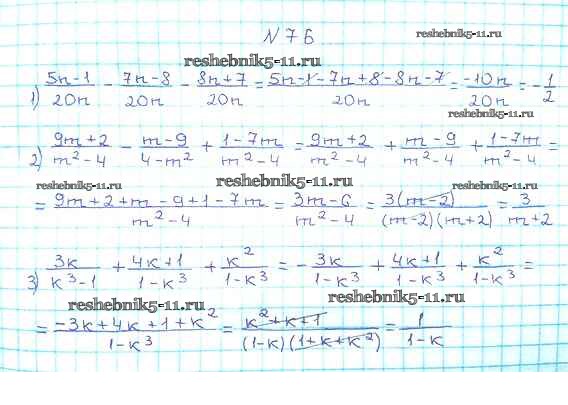 N 76
reshebnik5-11.ru
reshebnik5-11.ru
1) (5n-1)/(20n) - (7n-8)/(20n) - (8n+7)/(20n) = (5n-1-7n+8-8n-7)/(20n) = (-10n)/(20n) = -1/2
reshebnik5-11.ru
2) (9m+2)/(m²-4) - (m-9)/(4-m²) + (1-7m)/(m²-4) = (9m+2)/(m²-4) + (m-9)/(m²-4) + (1-7m)/(m²-4) =
reshebnik5-11.ru reshebnik5-11.ru reshebnik5-11.ru
= (9m+2+m-9+1-7m)/(m²-4) = (3m-6)/(m²-4) = (3(m-2))/((m-2)(m+2)) = 3/(m+2)
3) 3k/(k³-1) + (4k+1)/(1-k³) + k²/(1-k³) = -3k/(1-k³) + (4k+1)/(1-k³) + k²/(1-k³) =
reshebnik5-11.ru reshebnik5-11.ru
= (-3k+4k+1+k²)/(1-k³) = (k²+k+1)/((1-k)(1+k+k²)) = 1/(1-k)